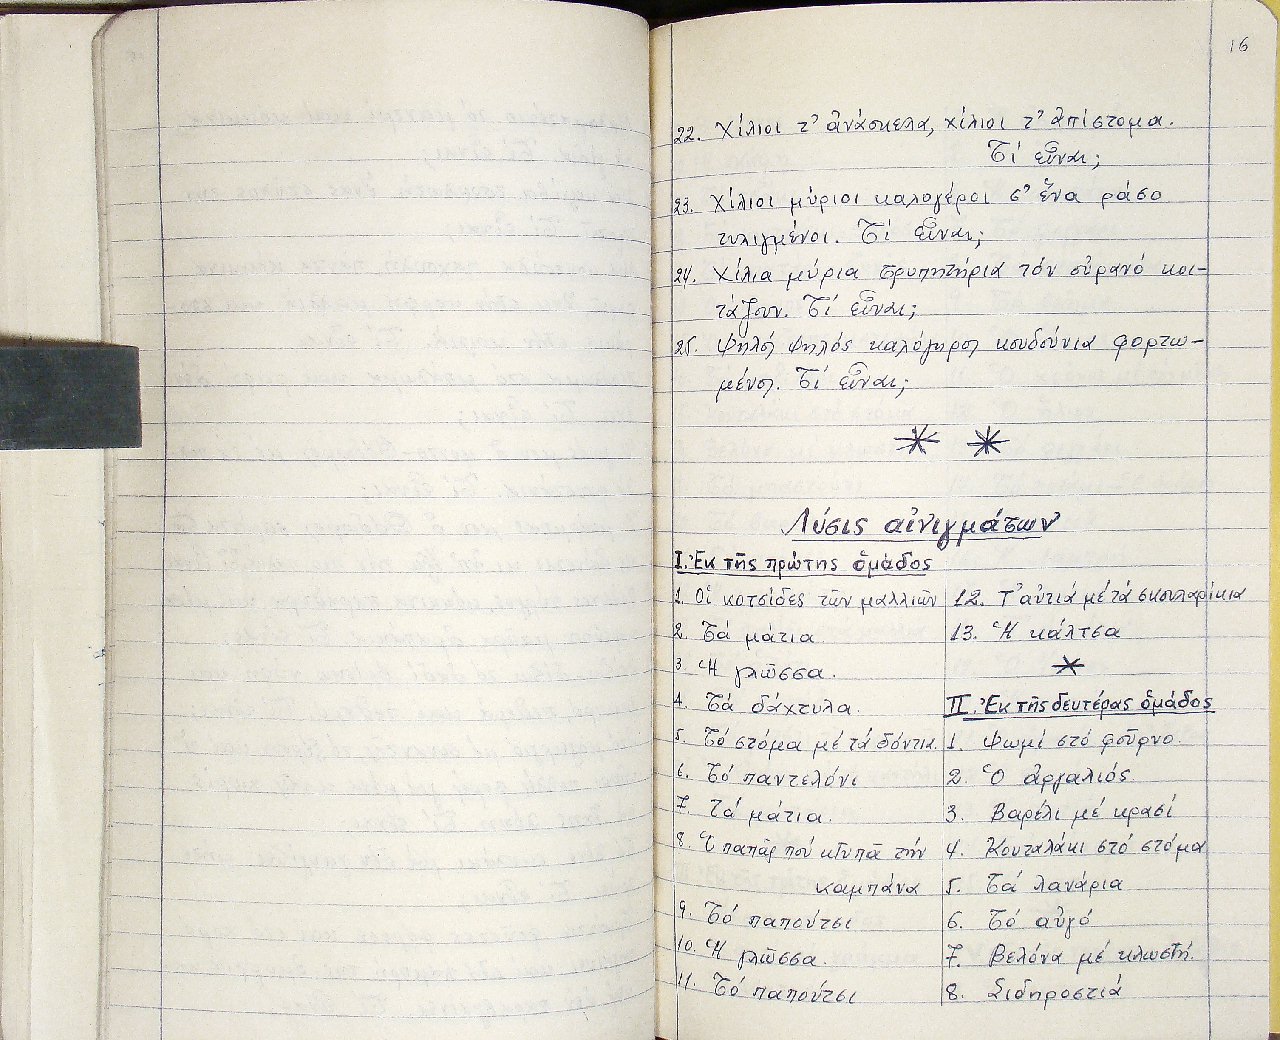 16
22. Χίλιοι τ' ἀνάσκελα, χίλιοι τ' ἀπίστομα.
Τί εἶναι;
23. Χίλιοι μύριοι καλογέροι σ' ἕνα ράσο
τυλιγμένοι. Τί εἶναι;
24. Χίλια μύρια τρυπητήρια τόν οὐρανό κοι-
τάζουν. Τί εἶναι;
25. Ψηλός ψηλός καλόγηρος κουδούνια φορτω-
μένος. Τί εἶναι;
Λύσις αἰνιγμάτων
I. Ἐκ τῆς πρώτης ὁμάδος
1. Οἱ κοτσίδες τῶν μαλλιῶν
2. Τά μάτια
3. Ἡ γλῶσσα.
4. Τά δάχτυλα.
5. Τό στόμα μέ τά δόντια.
6. Τό παντελόνι
7. Τά μάτια.
8. Ὁ παπᾶς πού κτυπᾶ τήν
καμπάνα
9. Τό παπούτσι
10. Ἡ γλῶσσα.
11. Τό παπούτσι
12. Τ' αὐτιά μέ τά σκουλαρίκια
13. Ἡ κάλτσα
II. Ἐκ τῆς δευτέρας ὁμάδος
1. Ψωμί στό φοῦρνο.
2. Ὁ ἀργαλιός
3. Βαρέλι μέ κρασί
4. Κουταλάκι στό στόμα
5. Τά λανάρια
6. Τό αὐγό
7. Βελόνα μέ κλωστή.
8. Σιδηροστιά